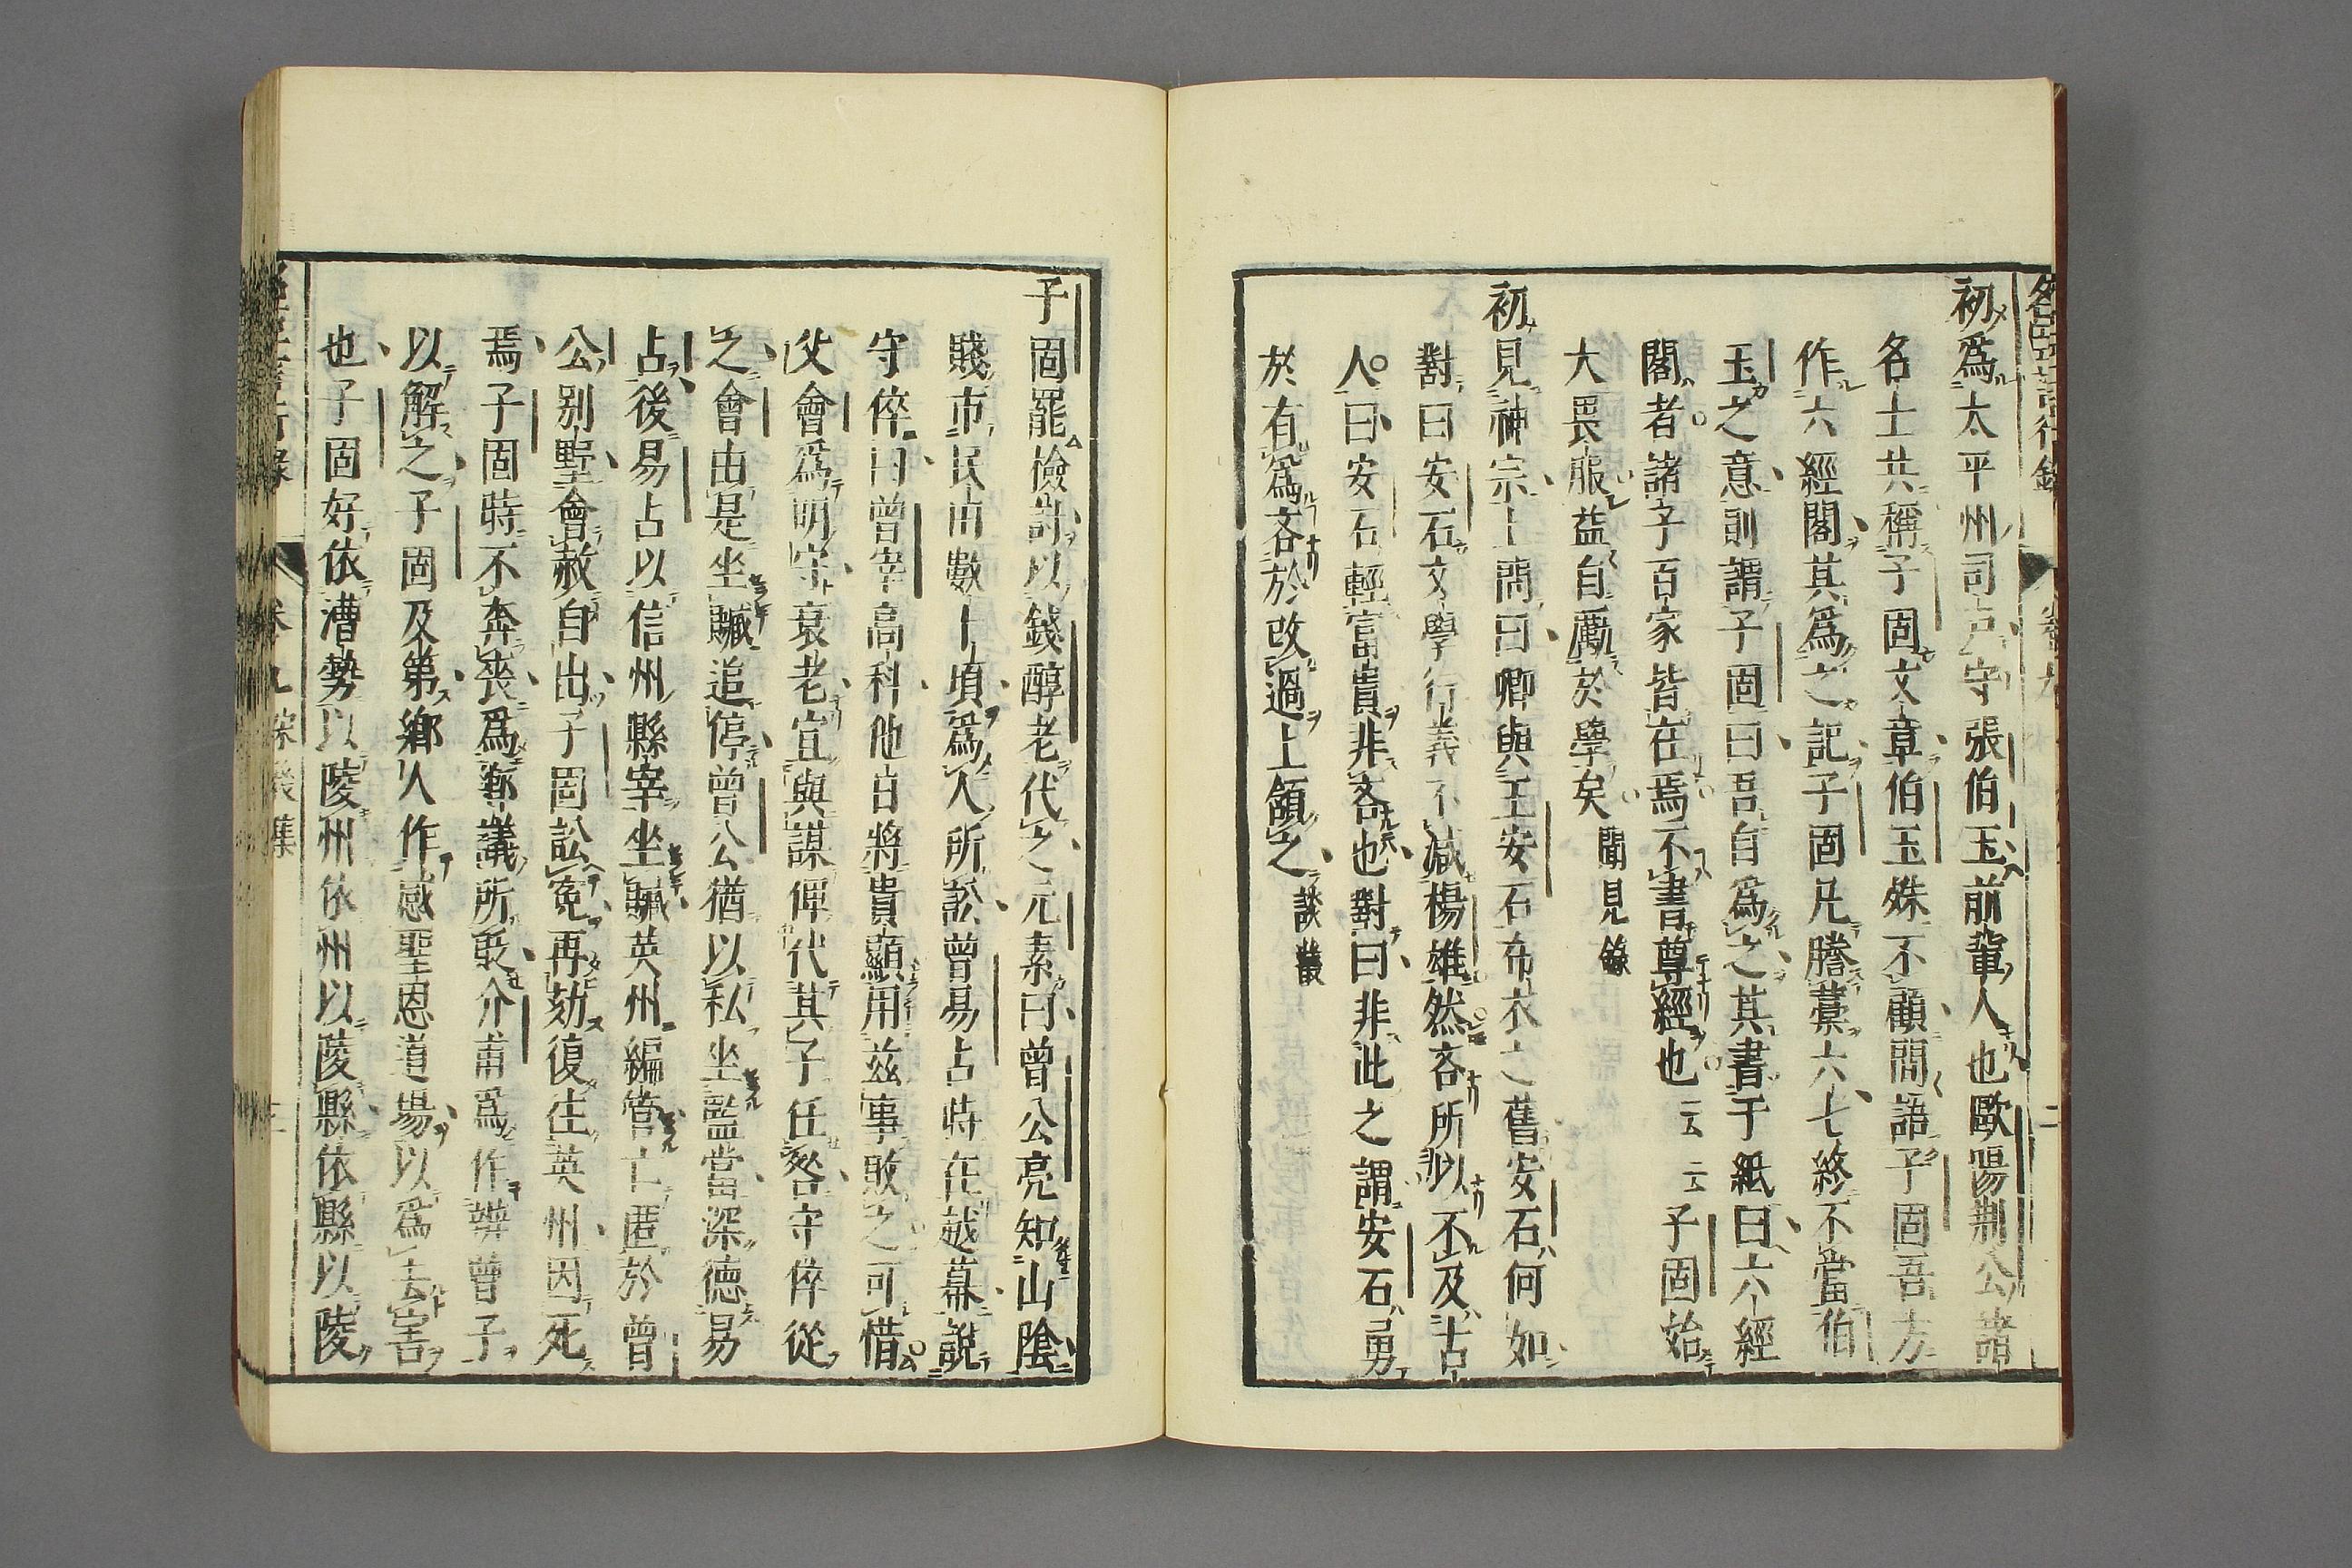 初爲太平州司戶守張伯玉前輩人也歐陽荆公諸
名士共稱子固文章伯玉殊不顧間語子固吾方
作六經閣其爲之記子固凡謄藁六七終不當伯
玉之意則謂子固曰吾自爲之其書于紙曰六經
閣者諸子百家皆在焉不書尊經也云云子固始
大畏服益自勵於學矣聞見錄
初見神宗上問曰卿與王安石布衣之舊安石何如
對曰安石文學行義不減楊雄然吝所以不及古
人曰安石輕富貴非吝也對曰非此之謂安石勇
於有爲吝於改過上頷之談叢
子固罷檢討以錢醇老代之元素曰曾公亮知山陰
賤市民田數十頃爲人所訟曾易占時在越幕說
守倅曰曾宰高科他日將貴顯用兹事敗之可惜
父會爲明守衰老宜與謀俾代其子任咎守倅從
之會由是坐贓追停曾公猶以私坐監當深德易
占後易占以信州縣宰坐贓英州編管亡匿於曾
公别墅會赦自出子固訟寃再劾復往英州因死
焉子固時不奔喪爲鄉議所貶介甫爲作辨曾子
以解之子固及第鄉人作感聖恩道場以爲去害
也子固好依漕勢以陵州依州以陵縣依縣以陵